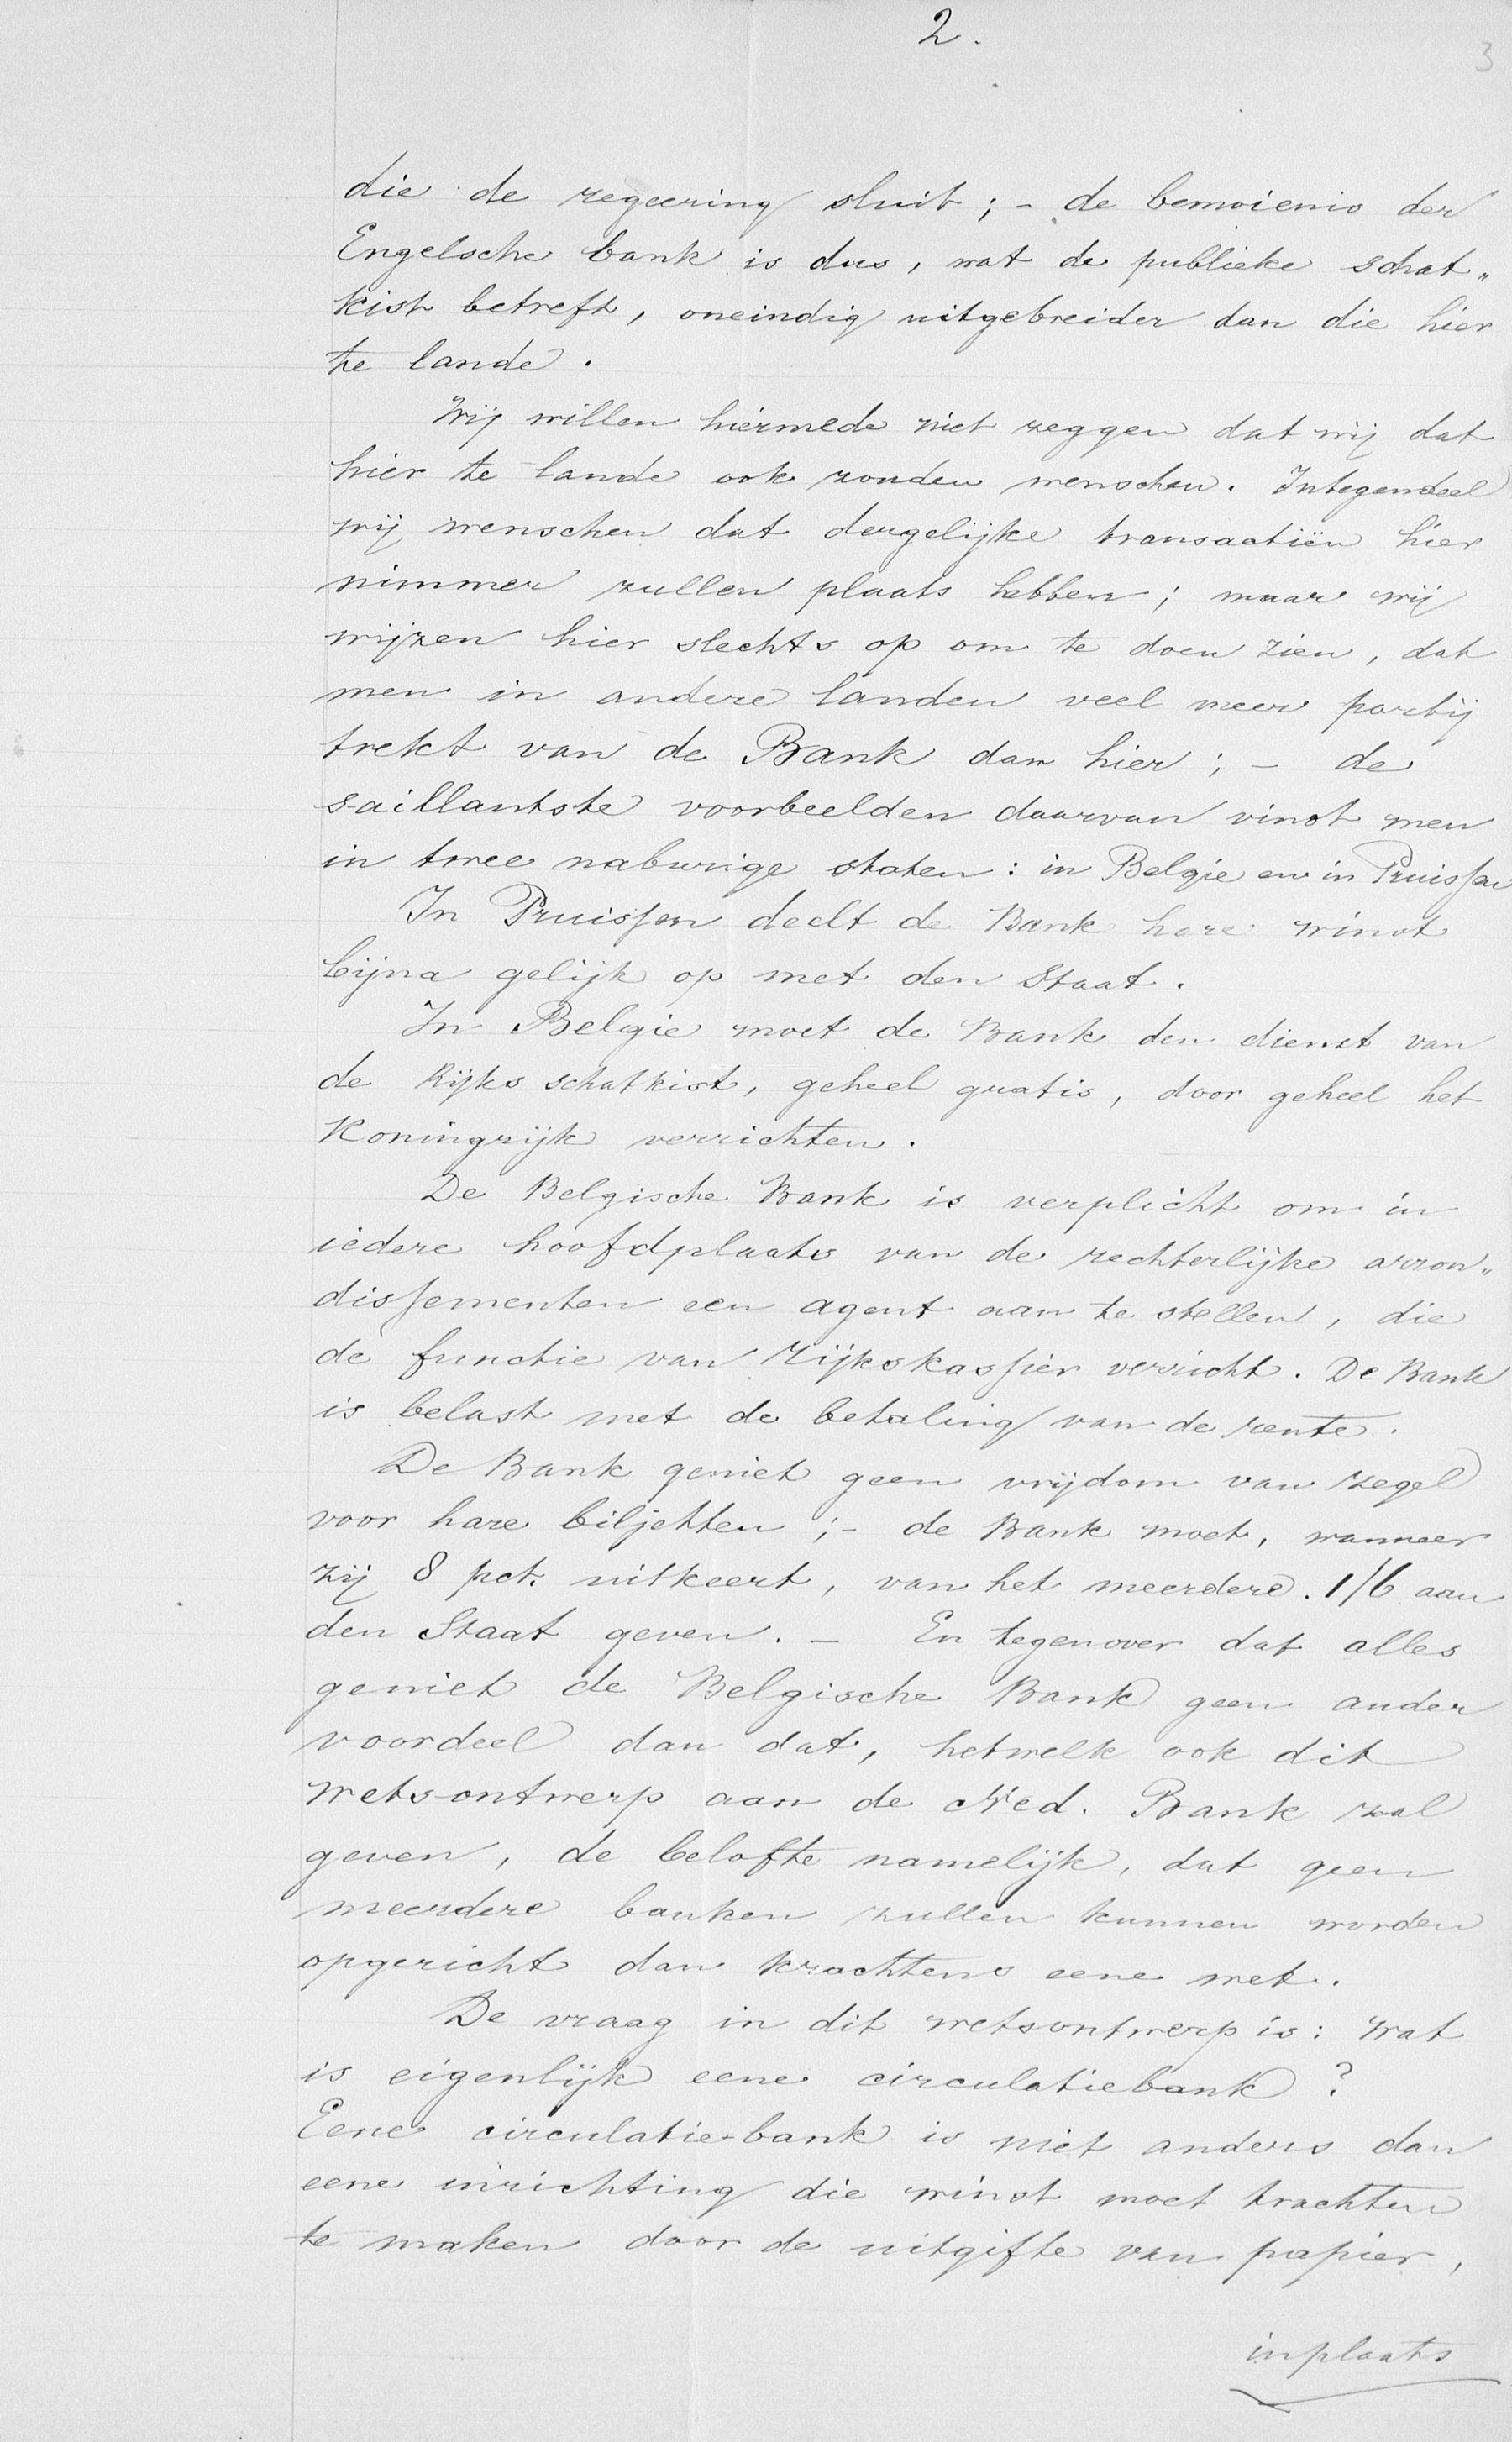 2.
3
die de regeering sluit; - de bemoienis der
Engelsche bank is dus, wat de publieke schat„
kist betreft, oneindig uitgebreider dan die hier
te lande.
Wij willen hiermede niet zeggen dat wij dat
hier te lande ook zouden wenschen. Integendeel
wij wenschen dat dergelijke transactiën hier
nimmer zullen plaats hebben; maar wij
wijzen hier slechts op om te doen zien, dat
men in andere landen veel meer partij
trekt van de Bank dan hier; - de
saillantste voorbeelden daarvan vindt men
in twee naburige staten: in Belgie en in Pruissen
In Pruissen deelt de Bank hare winst
bijna gelijk op met den Staat.
In Belgie moet de Bank den dienst van
de Rijks schatkist, geheel gratis, door geheel het
Koningrijk verrichten.
De Belgische Bank is verplicht om in
iedere hoofdplaats van de rechterlijke arron„
dissementen een agent aan te stellen, die
de functie van Rijkskassier verricht. De Bank
is belast met de betaling van de rente.
De Bank geniet geen vrijdom van zegel
voor hare biljetten; - de Bank moet, wanneer
zij 8 pct. uitkeert, van het meerdere 1/6 aan
den Staat geven. - En tegenover dat alles
geniet de Belgische Bank geen ander
voordeel dan dat, hetwelk ook dit
wetsontwerp aan de Ned. Bank zal
geven, de belofte namelijk, dat geen
meerdere banken zullen kunnen worden
opgericht dan krachtens eene wet.
De vraag in dit wetsontwerp is: wat
is eigenlijk eene circulatiebank?
Eene circulatie-bank is niet anders dan
eene inrichting die winst moet trachten
te maken door de uitgifte van papier,
inplaats